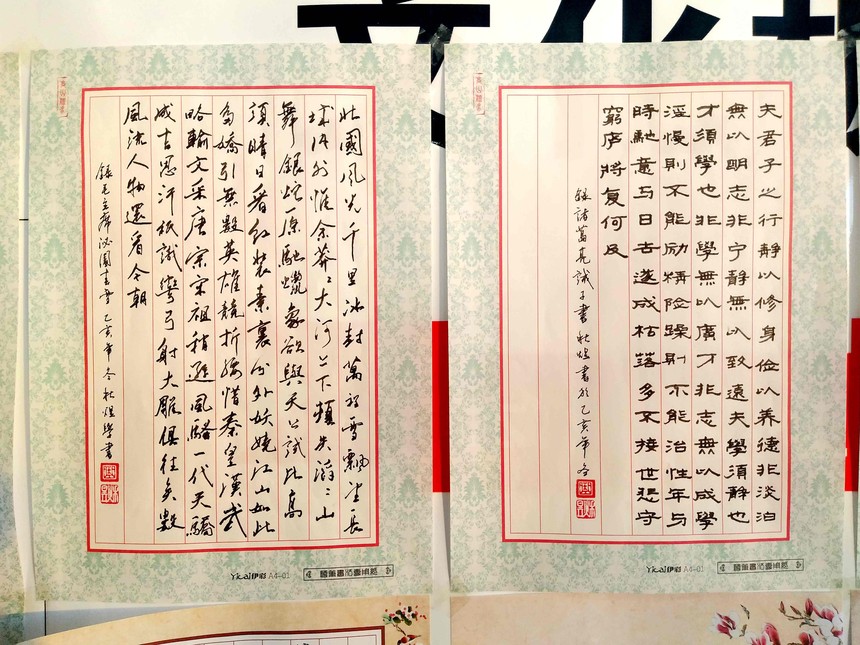 北國風光千里冰封萬里雪飘望長
城内外惟余莽〻大河上下頓失滔〻山
舞銀蛇原馳蠟象欲與天公試比高
須晴日看红装素裹分外妖娆江山如此
多嬌引無數英雄競折腰惜秦皇漢武
略輸文采唐宗宋祖稍遜風騷一代天驕
成吉思汗祇識彎弓射大雕俱往矣數
風流人物還看今朝
録毛主席沁園春雪 乙亥年冬杜煜學書
Yicai伊彩 A4-01
夫君子之行静以修身俭以养德非淡泊
無以明志非宁静無以致遠夫學須静也
才須學也非學無以廣才非志無以成學
淫慢则不能励精险躁则不能治性年与
時馳意与日去遂成枯落多不接世悲守
窮庐将复何及
録諸葛亮诫子書 杜煜書於乙亥年冬
Yicai伊彩 A4-01